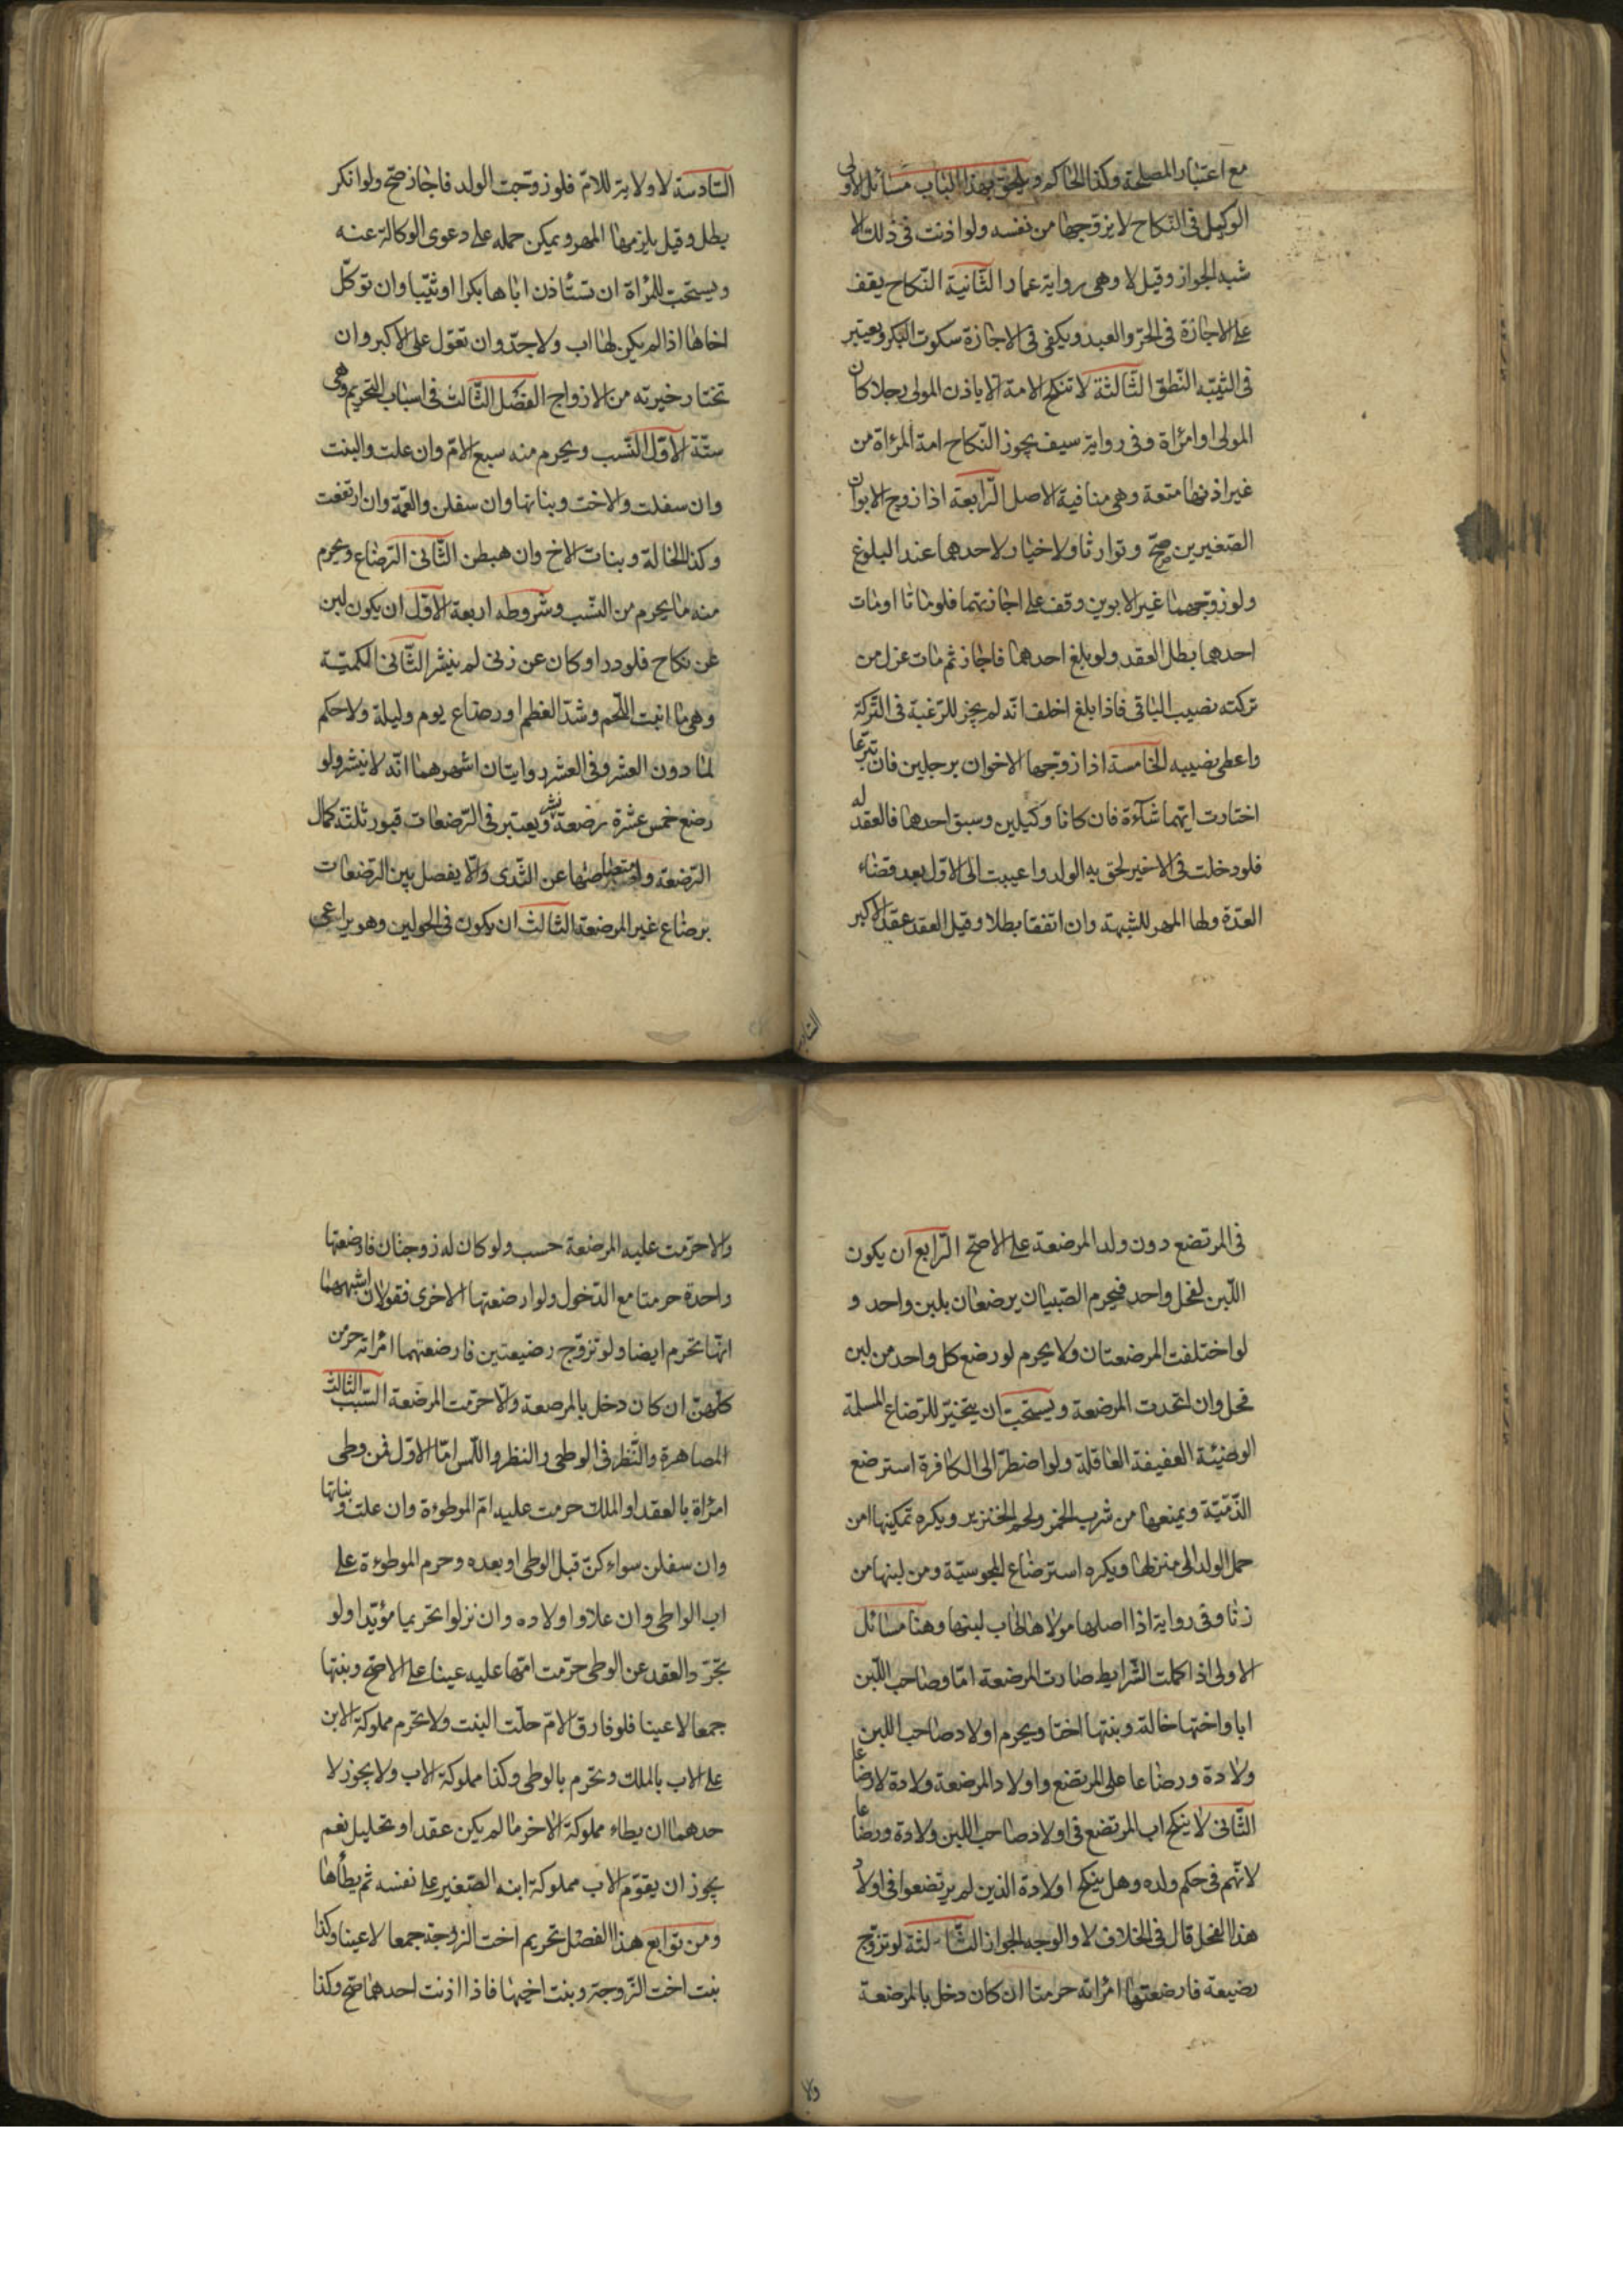 مع اعتبار المصلحة وكذا الحاكم ويلحق بهذا الباب مسائل الاولى
الوكيل فى النكاح لا يزوجها من نفسه ولو اذنت فى ذلك الا
شبه الجواز وقيل لا وهى رواية عمار الثانية النكاح يقف
على الاجازة فى الحر والعبد ويكفى فى الاجازة سكوت البكر ويعتبر
فى الثيبه النطق الثالثة لا تنكح الامة الا باذن المولى رجلا كان
المولى او امراة وفى رواية سيف يجوز النكاح امة المراة من
غير اذنها متعة وهى منافية الاصل الرابعة اذا زوج الابوان
الصغيرين صح وتوارثا ولا خيار لاحدهما عند البلوغ
ولو زوجهما غير الابوين وقف على اجازتهما فلو ماتا او مات
احدهما بطل العقد ولو بلغ احدهما فاجاز ثم مات عزل من
تركته نصيب الباقى فاذا بلغ احلف انه لم يجز للرغبة فى التركة
واعطى نصيبه الخامسة اذا زوجها الاخوان برجلين فان تبرعا
اختارت ايهما شاءة فان كانا وكيلين وسبق احدهما فالعقد له
فلو دخلت فى الاخير لحق به الولد واعيبت الى الاول بعد قضاء
العدة ولها المهر للشبهة وان اتفقا بطلا وقيل العقد عقد الاكبر
السادسة لا ولاية للام فلو زوجت الولد فاجاز صح ولو انكر
بطل وقيل يلزمها المهر ويمكن حمله على دعوى الوكالة عنه
ويستحب للمراة ان تستاذن اباها بكرا او ثيبا وان توكل
اخاها اذا لم يكن لها اب ولا جد وان تعول على الاكبر وان
تختار خيرته من الازواج الفصل الثالث فى اسباب التحريم وهى
ستة الاول النسب ويحرم منه سبع الام وان علت والبنت
وان سفلت والاخت وبناتها وان سفلن والعمة وان ارتفعت
وكذا الخالة وبنات الاخ وان هبطن الثانى الرضاع ويحرم
منه ما يحرم من النسب وشروطه اربعة الاول ان يكون لبن
عن نكاح فلو در او كان عن زنى لم ينشر الثانى الكمية
وهى ما انبت اللحم وشد العظم او رضاع يوم وليلة ولا حكم
لما دون العشر وفى العشر روايتان اشهرهما انه لا ينشر ولو
رضع خمس عشرة رضعة نشر ويعتبر فى الرضعات قيود ثلثة كمال
الرضعة وامتصاصها عن الثدى والا يفصل بين الرضعات
برضاع غير المرضعة الثالث ان يكون فى الحولين وهو يراعى
فى المرتضع دون ولد المرضعة على الاصح الرابع ان يكون
اللبن لفحل واحد فيحرم الصبيان يرضعان بلبن واحد و
لو اختلفت المرضعتان ولا يحرم لو رضع كل واحد من لبن
فحل وان اتحدت المرضعة ويستحب ان يتخير للرضاع المسلمة
الوضيئة العفيفة العاقلة ولو اضطر الى الكافرة استرضع
الذمية ويمنعها من شرب الخمر ولحم الخنزير ويكره تمكينها من
حمل الولد الى منزلها ويكره استرضاع المجوسية ومن لبنها من
زنا وفى رواية اذا احلها مولاها طاب لبنها وهنا مسائل
الاولى اذ اكملت الشرايط صارت المرضعة اما وصاحب اللبن
ابا واختها خالة وبنتها اختا ويحرم اولاد صاحب اللبن
ولادة ورضاعا على المرتضع واولاد المرضعة ولادة لا رضاعا
الثانى لا ينكح اب المرتضع فى اولاد صاحب اللبن ولادة ورضاعا
لانهم فى حكم ولده وهل ينكح اولادة الذين لم يرتضعوا فى اولاد
هذا الفحل قال فى الخلاف لا والوجه الجواز الثالثة لو تزوج
رضيعة فارضعتها امراته حرمتا ان كان دخل بالمرضعة
والا حرمت عليه المرضعة حسب ولو كان له زوجتان فارضعتها
واحدة حرمتا مع الدخول ولو ارضعتها الاخرى فقولان اشبههما
انها تحرم ايضا ولو تزوج رضيعتين فارضعتهما امراته حرمن
كلهن ان كان دخل بالمرضعة والا حرمت المرضعة السبب الثالث
المصاهرة والنظر فى الوطى والنظر واللمس اما الاول فمن وطى
امراة بالعقد او الملك حرمت عليه ام الموطوءة وان علت وبناتها
وان سفلن سواء كن قبل الوطى او بعده وحرم الموطوءة على
اب الواطى وان علا واولاده وان نزلوا تحريما مؤبدا ولو
تجرد العقد عن الوطى حرمت امها عليه عينا على الاصح وبنتها
جمعا لا عينا فلو فارق الام حلت البنت ولا تحرم مملوكة الابن
على الاب بالملك وتحرم بالوطى وكذا مملوكة الاب ولا يجوز لا
حدهما ان يطاء مملوكة الاخر ما لم يكن عقد او تحليل نعم
يجوز ان يقوم الاب مملوكة ابنه الصغير على نفسه ثم يطأها
ومن توابع هذا الفصل تحريم اخت الزوجة جمعا لا عينا وكذا
بنت اخت الزوجة وبنت اخيها فاذا اذنت احدهما صح وكذا